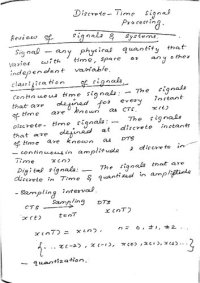 Discrete-Time Signal
Processing.
Review of Signals & Systems.
Signal - any physical quantity that
varies with time, space or any other
independent variable.
classification of signals
Continuous time signals:- The signals
that are defined for every instant
of time are known as CTS. x(t)
Discrete-time signals:- The signals
that are defined at discrete instants
of time are known as DTS
- continuous in amplitude & discrete in
Time x(n)
Digital signals:- The signals that are
discrete in Time & quantized in amplitude
- Sampling interval.
CTS Sampling DTS
x(t) t=nT x(nT)
x(nT) = x(n), n = 0, ±1, ±2...
{... x(-2), x(-1), x(0), x(1), x(2)...}
- quantization.